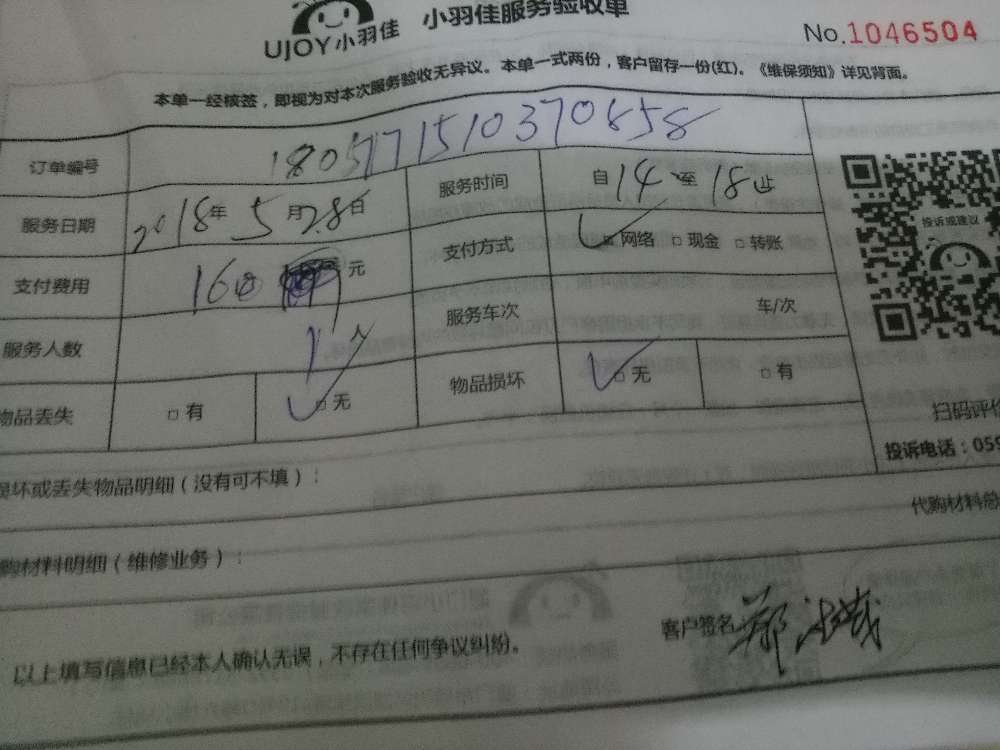 UJOY小羽佳 小羽佳服务验收单 No.1046504
本单一经核签，即视为对本次服务验收无异议。本单一式两份，客户留存一份(红)。《维保须知》详见背面。
订单编号 180571510370858
服务日期 2018年5月28日 服务时间 自14至18止
支付费用 160 元 支付方式 网络 □现金 □转账
服务人数 1人 服务车次 车/次
物品丢失 □有 □无 物品损坏 □无 □有
投诉或建议
扫码评价
投诉电话：059
损坏或丢失物品明细（没有可不填）：
代购材料总
购材料明细（维修业务）：
以上填写信息已经本人确认无误，不存在任何争议纠纷。 客户签名 郑